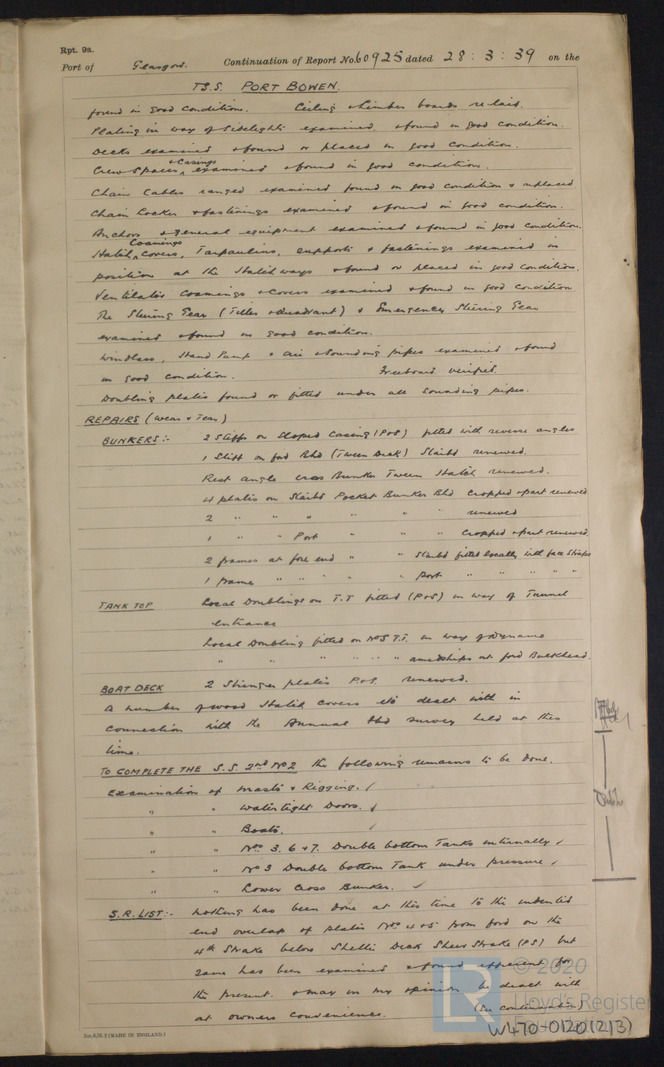 Rpt. 9a.
Port of Glasgow. Continuation of Report No. 60925 dated 28 : 3 : 39 on the
T.S.S. PORT BOWEN.
found in good condition. Ceiling & limber boards relaid.
Plating in way of sidelights examined & found in good condition.
Decks examined & found or placed in good condition.
Crew Spaces & Casings examined & found in good condition.
Chain Cables ranged examined found in good condition & replaced
Chain Locker & fastenings examined & found in good condition.
Anchors & general equipment examined & found in good condition.
Hatch Coamings, Covers, Tarpaulins, supports & fastenings examined in
position at the Hatchways & found or placed in good condition.
Ventilator Coamings & Covers examined & found in good condition
The Steering Gear (Tiller & Quadrant) & Emergency Steering Gear
examined & found in good condition.
Windlass, Hand Pump & air & sounding pipes examined & found
in good condition. Freeboard verified.
Doubling plates found or fitted under all sounding pipes.
REPAIRS (Wear & Tear)
BUNKERS:- 2 stiffs on sloped casing (P&S) fitted with reverse angles
1 Stiff on ford Bhd (Tween Deck) Starbd renewed.
Rest angle cross Bunker Tween Hatch renewed.
4 plates on Starbd Pocket Bunker Bhd cropped & part renewed
2 " " " " " " renewed
1 " " Port " " " cropped & part renewed
2 frames at fore end " " Starbd fitted locally with face straps
1 frame " " " " " Port " " " " "
TANK TOP Local Doublings on T.T fitted (P&S) in way of Tunnel
entrance
Local Doubling fitted on No 5 T.T. in way of dynamo
" " " " " " amidships at ford Bulkhead.
BOAT DECK 2 Stringer plates P&S renewed.
A number of wood Hatch covers etc dealt with in
connection with the Annual Lbd survey held at this
time.
TO COMPLETE THE S.S. 2nd No 2 the following remains to be done.
Examination of Masts & Rigging. ✓
" " Watertight Doors. ✓
" " Boats. ✓
" " Nos 3. 6 & 7. Double bottom Tanks internally ✓
" " No 3 Double bottom Tank under pressure ✓
" " Lower Cross Bunker. ✓
S.R. LIST:- Nothing has been done at this time to the indented
end overlap of plates Nos 4 & 5 from ford on the
4th Strake below Shelter Deck Sheer Strake (PS) but
same has been examined & found efficient for
the present & may in my opinion be dealt with
at owners convenience. (See continuation)
© 2020
LR
Lloyd's Register
W470-0120(2/3)
(MADE IN ENGLAND.)